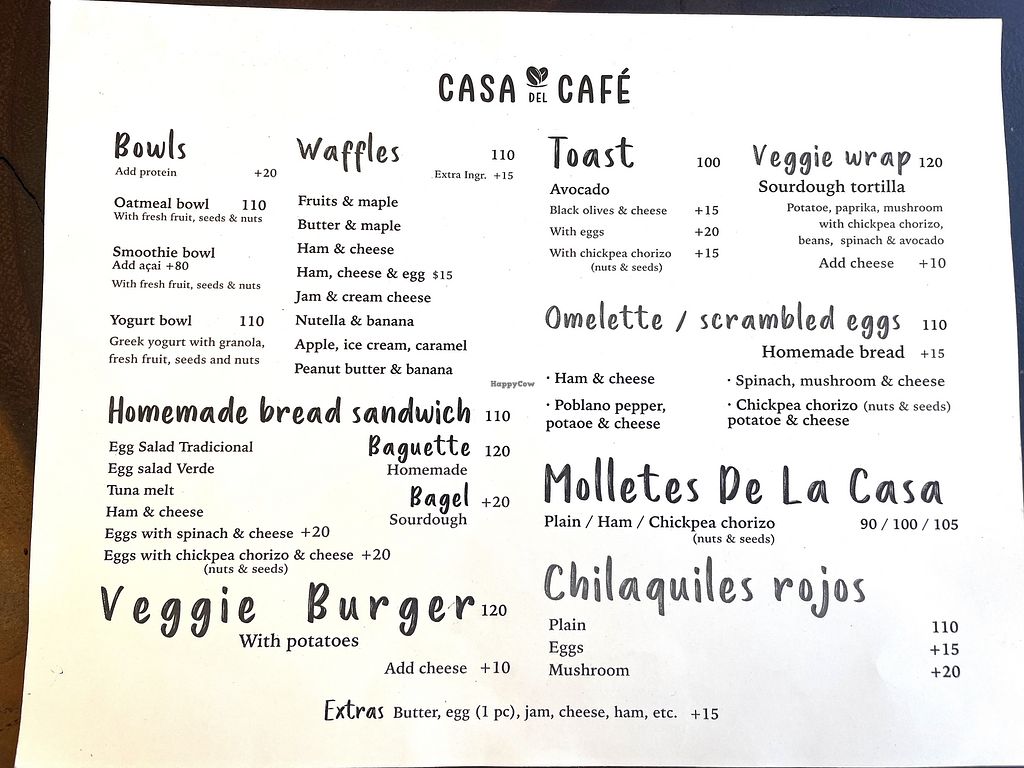 CASA DEL CAFÉ
Bowls
Add protein +20
Oatmeal bowl 110
With fresh fruit, seeds & nuts
Smoothie bowl
Add açai +80
With fresh fruit, seeds & nuts
Yogurt bowl 110
Greek yogurt with granola,
fresh fruit, seeds and nuts
Waffles 110
Extra Ingr. +15
Fruits & maple
Butter & maple
Ham & cheese
Ham, cheese & egg $15
Jam & cream cheese
Nutella & banana
Apple, ice cream, caramel
Peanut butter & banana
Homemade bread sandwich 110
Egg Salad Tradicional
Egg salad Verde
Tuna melt
Ham & cheese
Eggs with spinach & cheese +20
Eggs with chickpea chorizo & cheese +20
(nuts & seeds)
Baguette 120
Homemade
Bagel +20
Sourdough
Veggie Burger 120
With potatoes
Add cheese +10
Toast 100
Avocado
Black olives & cheese +15
With eggs +20
With chickpea chorizo +15
(nuts & seeds)
Veggie wrap 120
Sourdough tortilla
Potatoe, paprika, mushroom
with chickpea chorizo,
beans, spinach & avocado
Add cheese +10
Omelette / scrambled eggs 110
Homemade bread +15
· Ham & cheese
· Poblano pepper,
potaoe & cheese
· Spinach, mushroom & cheese
· Chickpea chorizo (nuts & seeds)
potatoe & cheese
Molletes De La Casa
Plain / Ham / Chickpea chorizo 90 / 100 / 105
(nuts & seeds)
Chilaquiles rojos
Plain 110
Eggs +15
Mushroom +20
Extras Butter, egg (1 pc), jam, cheese, ham, etc. +15
HappyCow